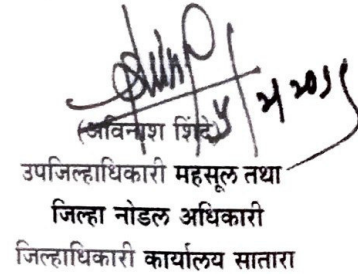 (अविनाश शिंदे)
उपजिल्हाधिकारी महसूल तथा
जिल्हा नोडल अधिकारी
जिल्हाधिकारी कार्यालय सातारा